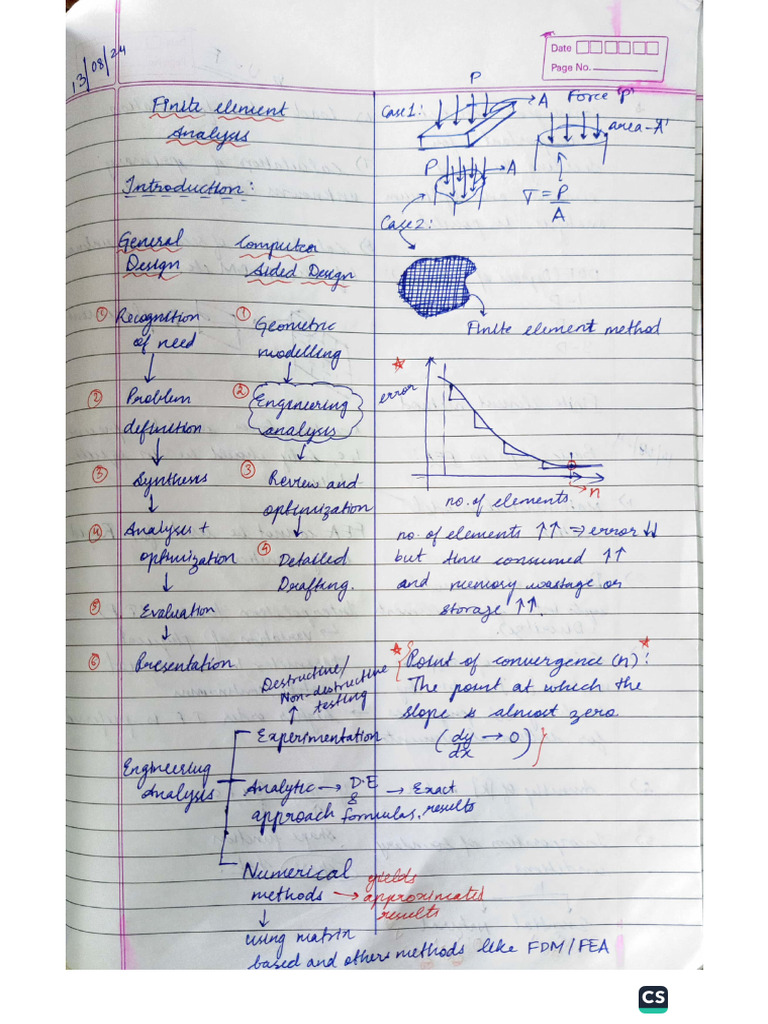 13/08/24
Date
Page No.
Finite element
Analysis
Introduction:
General
Design
① Recognition
of need
② Problem
definition
③ Synthesis
④ Analysis +
optimization
⑤ Evaluation
⑥ Presentation
Computer
Aided Design
① Geometric
modelling
② Engineering
analysis
③ Review and
optimization
④ Detailed
Drafting.
Engineering
Analysis
Destructive/
Non-destructive
testing
Experimentation
Analytic → D.E → Exact
&
approach formulas. results
Numerical
methods → yields
approximated
results
using matrix
based and others methods like FDM/FEA
Case 1:
P
A
Force 'P'
area-'A'
P
A
σ = P
A
Case 2:
Finite element method
error
n
no. of elements
no. of elements ↑↑ ⇒ error ↓↓
but time consumed ↑↑
and memory wastage or
storage ↑↑.
Point of convergence (n):
The point at which the
slope is almost zero.
(dy → 0)
dx
CS